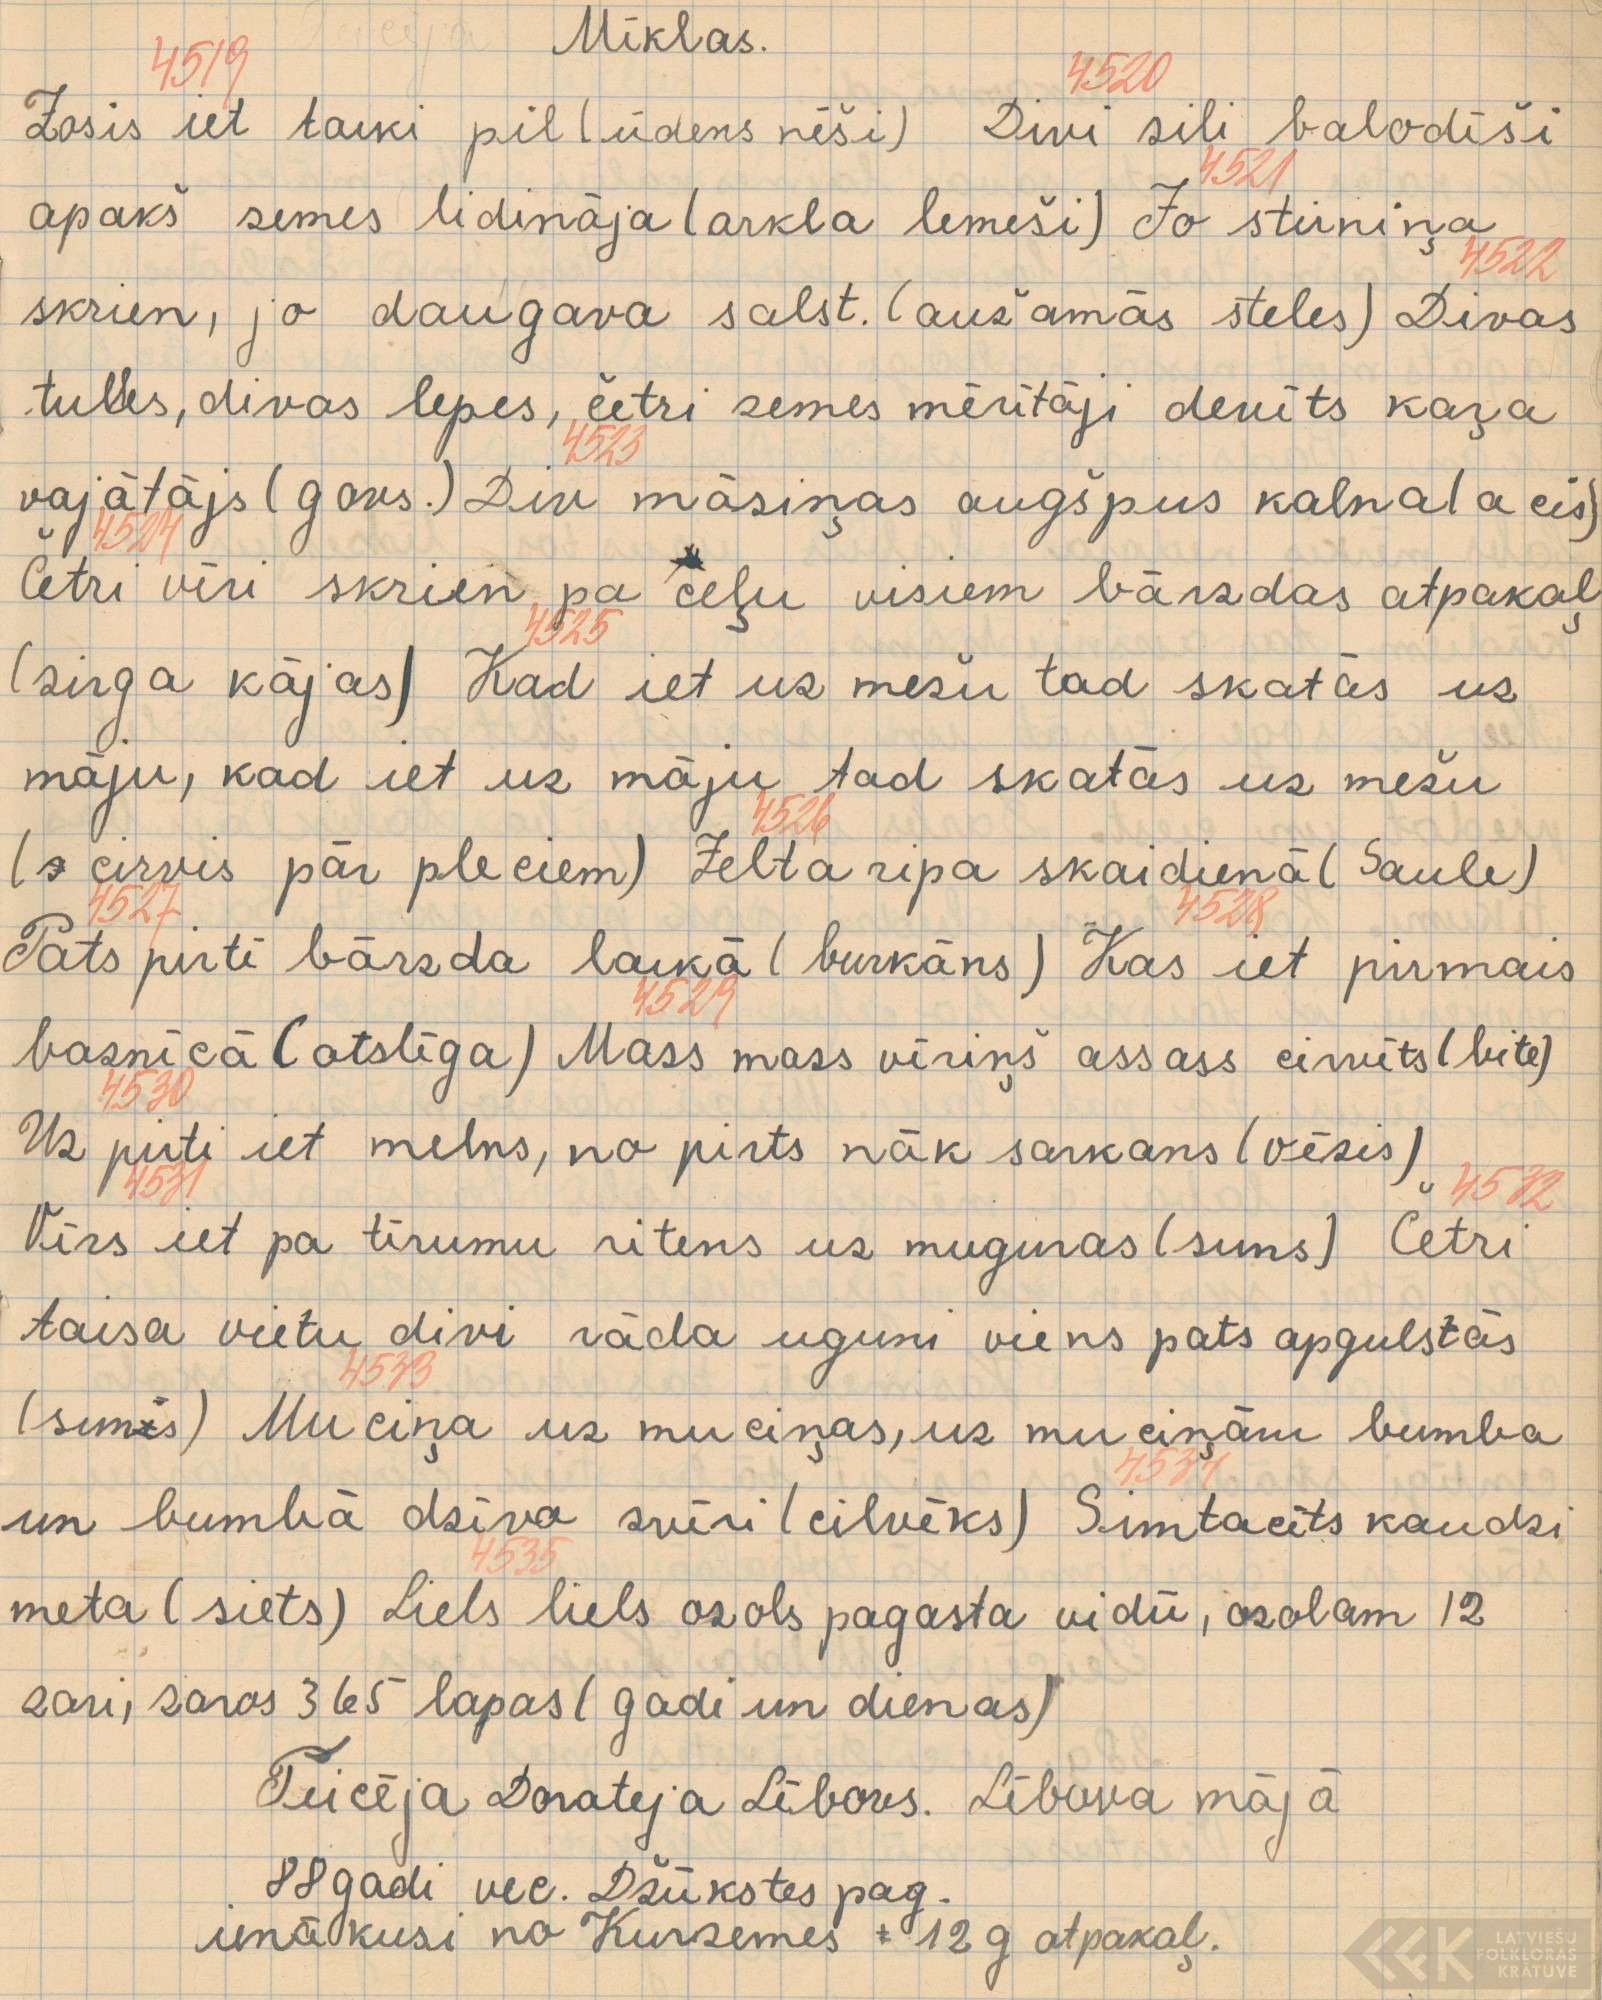 Mīklas.
4519 4520
Zosis iet tauki pil (ūdens nēši) Divi zili balodīši
4521
apakš zemes lidināja (arkla lemeši) Jo stirniņa
4522
skrien, jo daugava salst. (aužamās steles) Divas
tulles, divas lepes, četri zemes mērītāji devīts kaŗa
4523
vajātājs (govs.) Div māsiņas augšpus kalna (acis)
4524
Četri vīri skrien pa ceļu visiem bārzdas atpakaļ
4525
(zirga kājas) Kad iet uz mežu tad skatās uz
māju, kad iet uz māju tad skatās uz mežu
4526
(cirvis pār pleciem) Zelta ripa skaidienā (Saule)
4527 4528
Pats pirtī bārzda laukā (burkāns) Kas iet pirmais
4529
baznīcā (atslēga) Mazs mazs vīriņš assass cirvīts (bite)
4530
Uz pirti iet melns, no pirts nāk sarkans (vēzis)
4531 4532
Vīrs iet pa tīrumu ritens uz muguras (suns) Četri
taisa vietu divi rāda uguni viens pats apgulstās
4533
(sunis) Muciņa uz muciņas, uz muciņām bumba
4534
un bumbā dzīva zvēri (cilvēks) Simtacīts kaudzi
4535
meta (siets) Liels liels ozols pagasta vidū, ozolam 12
zari, zaros 365 lapas (gadi un dienas)
Teicēja Dorateja Lībovs. Lībova mājā
88 gadi vec. Džūkstes pag.
ienākusi no Kurzemes ± 12 g atpakaļ.
LATVIEŠU
FOLKLORAS
KRĀTUVE